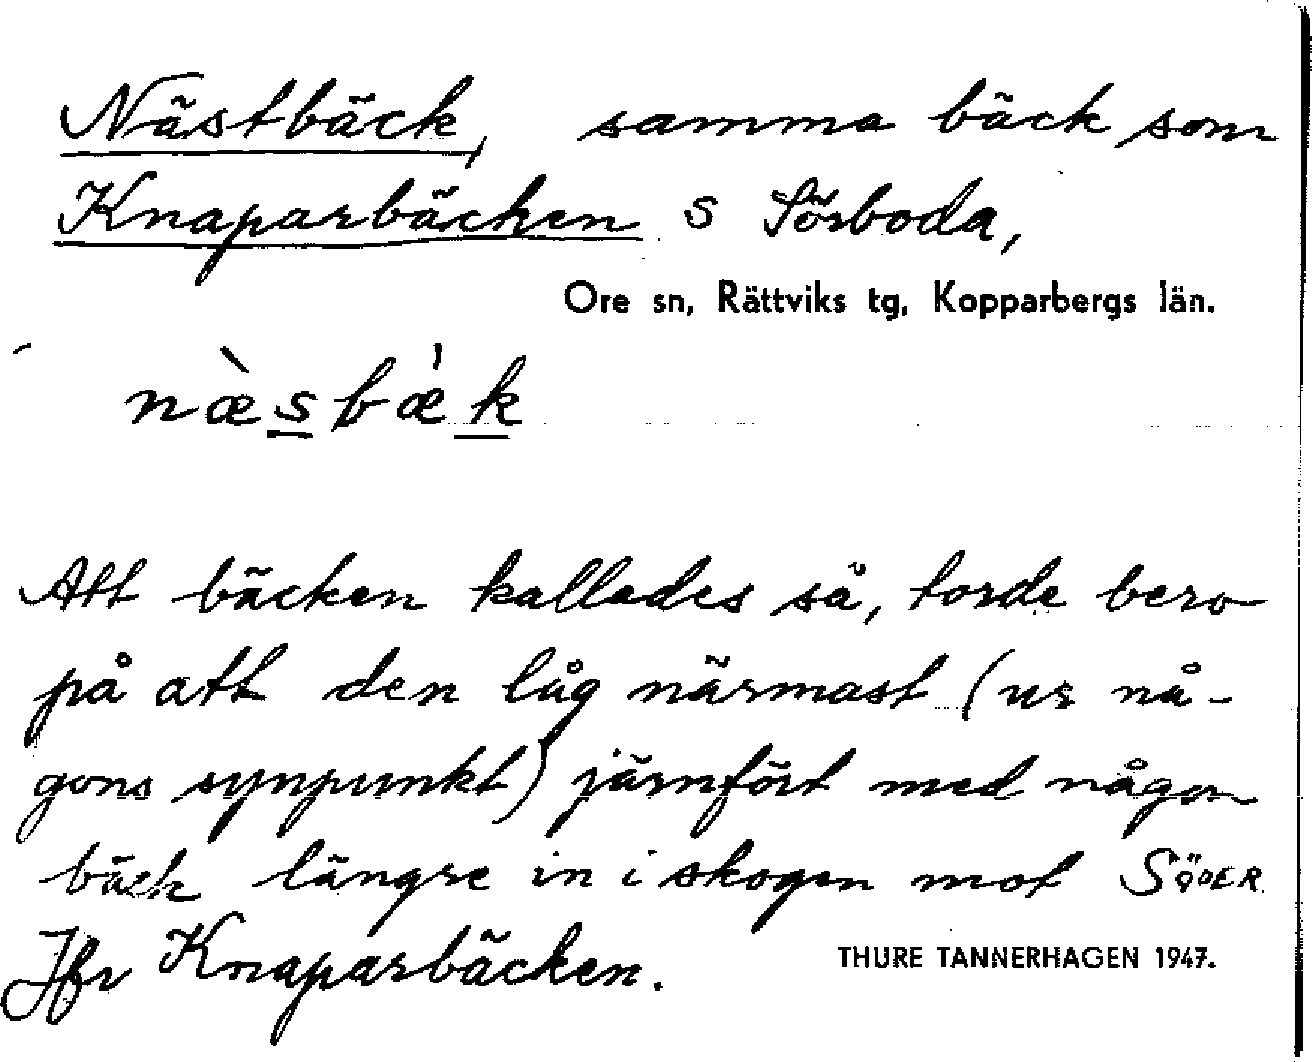 Nästbäck, samma bäck som
Knaparbäcken S Sörboda,
Ore sn, Rättviks tg, Kopparbergs län.
næ̀sbæ̀k
Att bäcken kallades så, torde bero
på att den låg närmast (ur nå-
gons synpunkt) jämfört med någon
bäck längre in i skogen mot SÖDER
Jfr Knaparbäcken.
THURE TANNERHAGEN 1947.